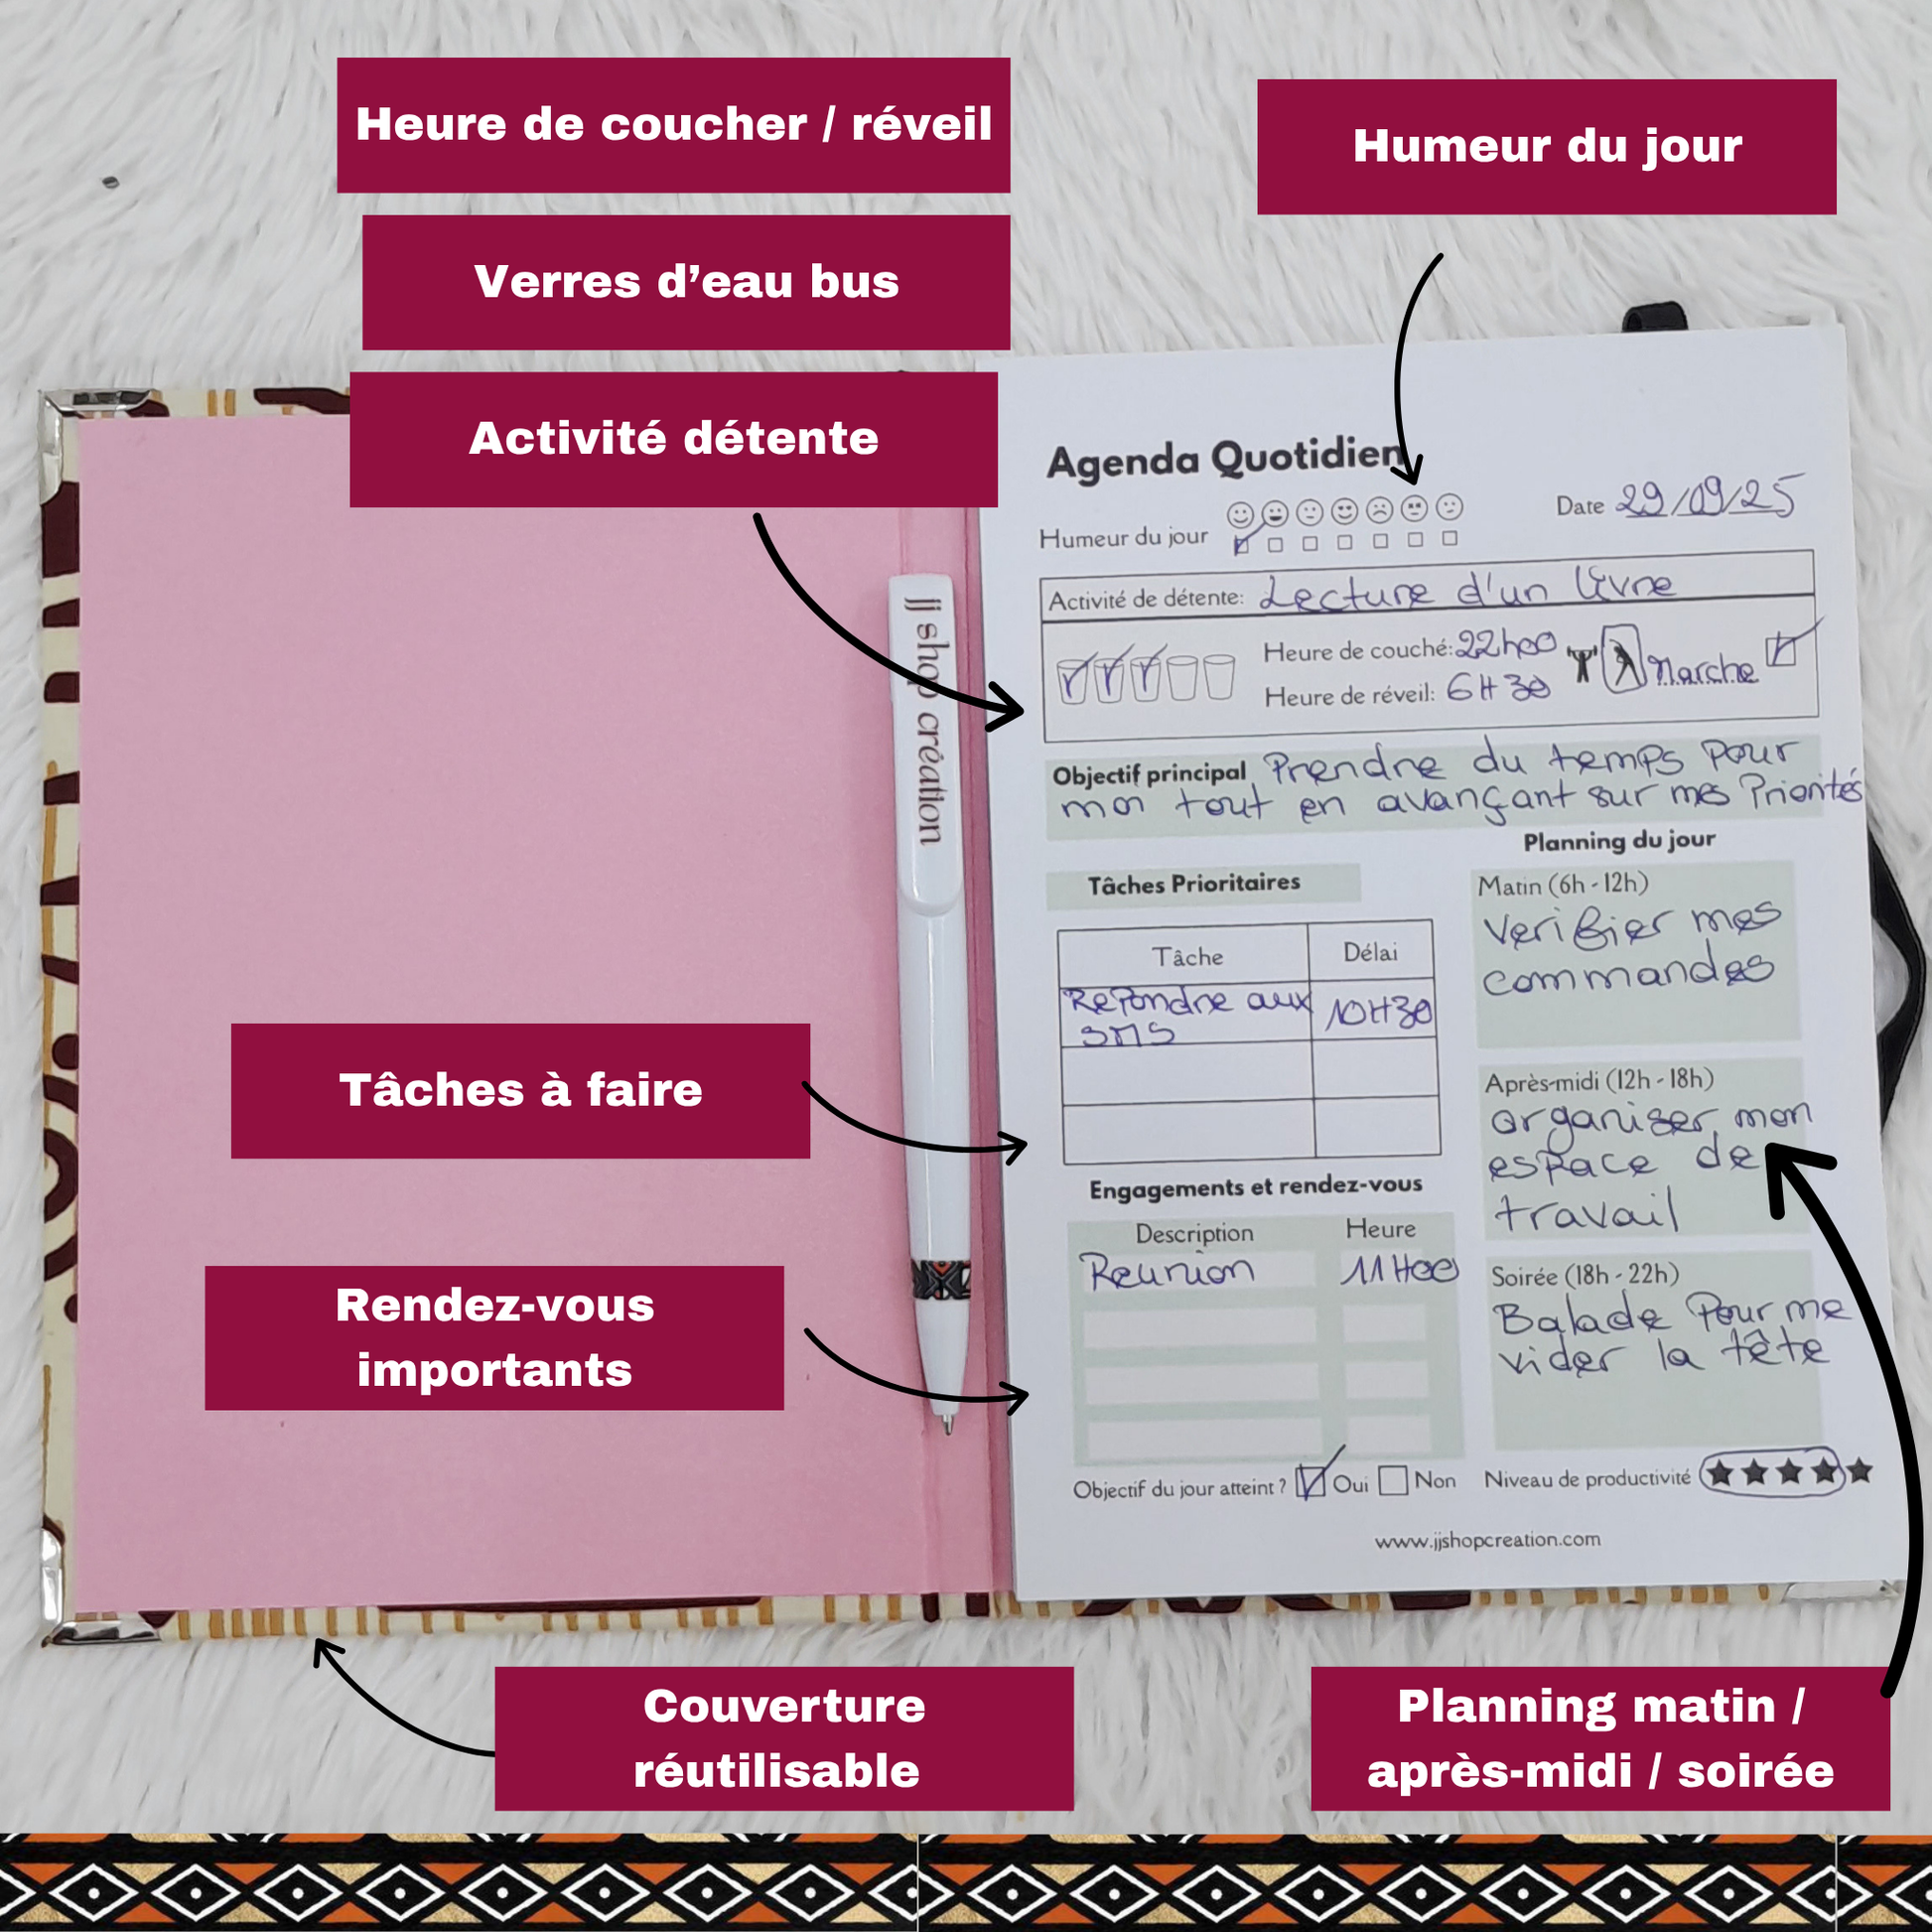 Heure de coucher / réveil
Humeur du jour
Verres d’eau bus
Activité détente
jj shop création
Agenda Quotidien
Humeur du jour
Date 29/09/25
Activité de détente: Lecture d'un livre
Heure de couché: 22h00
Heure de réveil: 6H30
Marche
Objectif principal Prendre du temps pour
moi tout en avançant sur mes Priorités
Tâches Prioritaires
Tâche Délai
Repondre aux 10H30
SMS
Engagements et rendez-vous
Description Heure
Reunion 11H00
Planning du jour
Matin (6h - 12h)
Verifier mes
commandes
Après-midi (12h - 18h)
organiser mon
espace de
travail
Soirée (18h - 22h)
Balade Pour me
vider la tête
Objectif du jour atteint ? Oui Non
Niveau de productivité
www.jjshopcreation.com
Tâches à faire
Rendez-vous
importants
Couverture
réutilisable
Planning matin /
après-midi / soirée